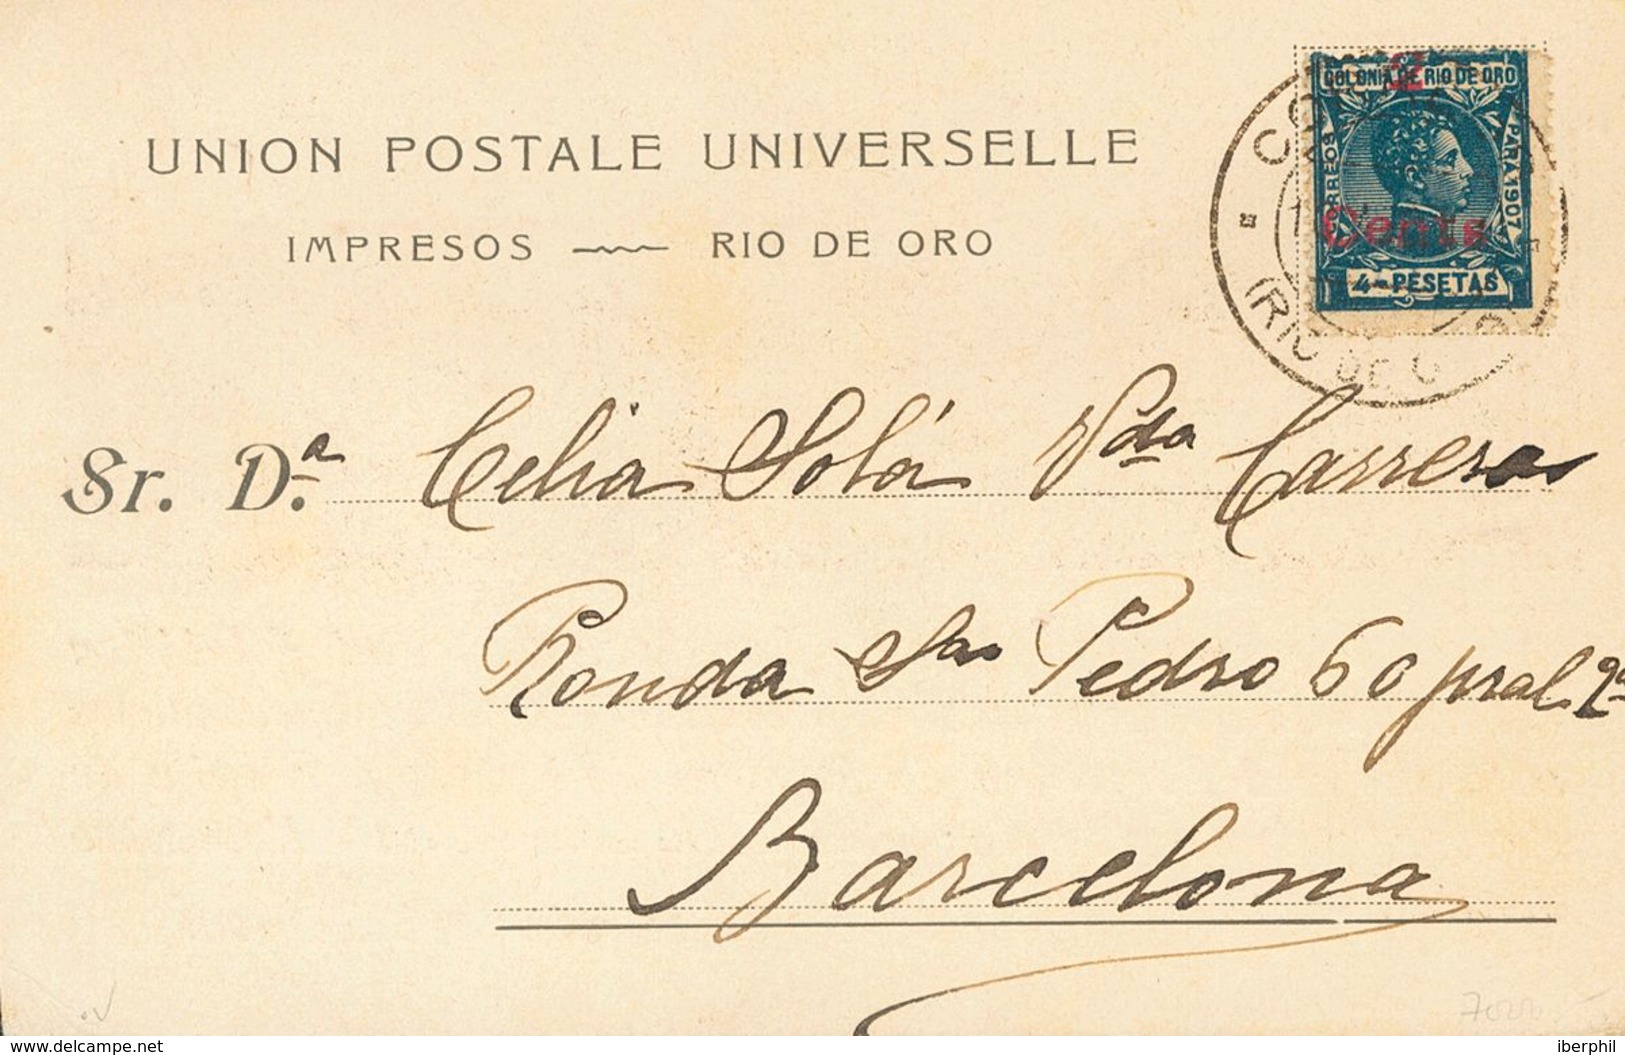 UNION POSTALE UNIVERSELLE
IMPRESOS — RIO DE ORO
COLONIA DE RIO DE ORO
CORREOS
PARA 1907
Cents
4 - PESETAS
(RIO DE O
Sr. D.ª Celia Solá Vda Carreras
Ronda San Pedro 60 pral 2ª
Barcelona
delcampe.net
iberphil